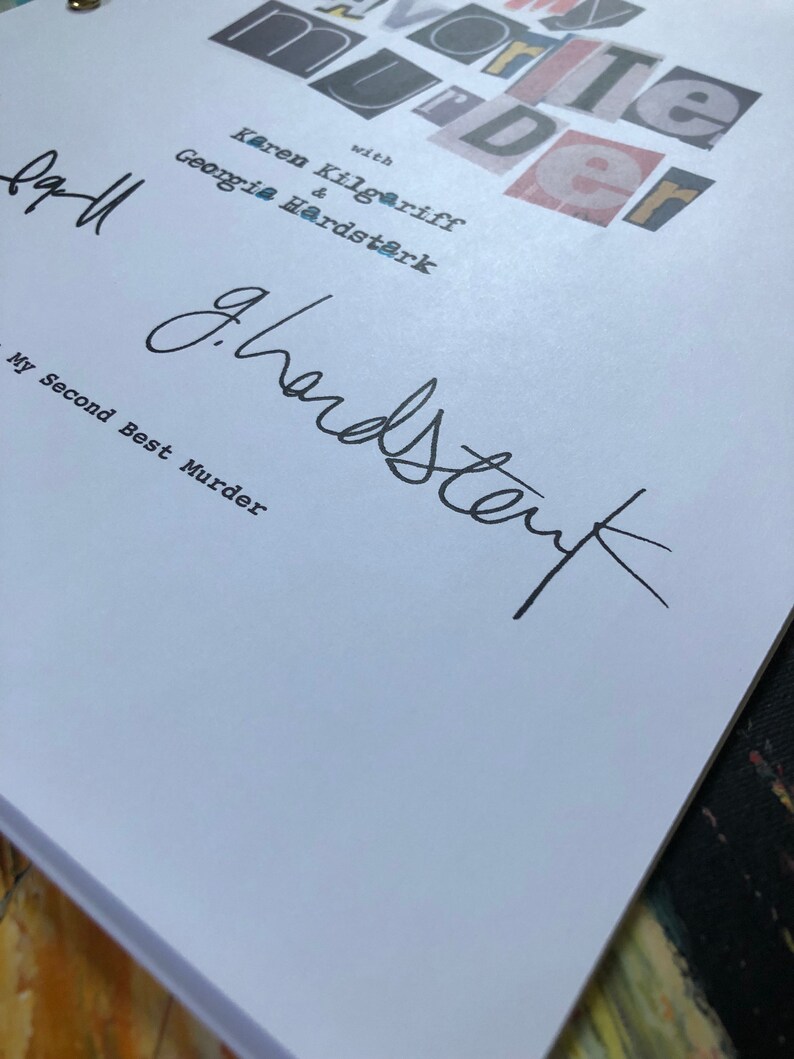 My
Favorite
murDer
with
Karen Kilgariff
&
Georgia Hardstark
g. hardstark
My Second Best Murder